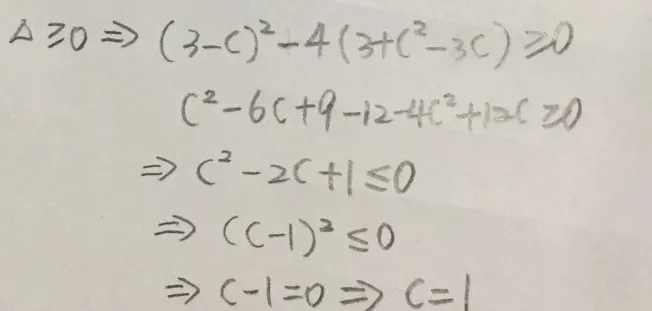 Δ≥0 ⇒ (3-C)²-4(3+C²-3C)≥0
C²-6C+9-12-4C²+12C≥0
⇒ C²-2C+1≤0
⇒ (C-1)²≤0
⇒ C-1=0 ⇒ C=1